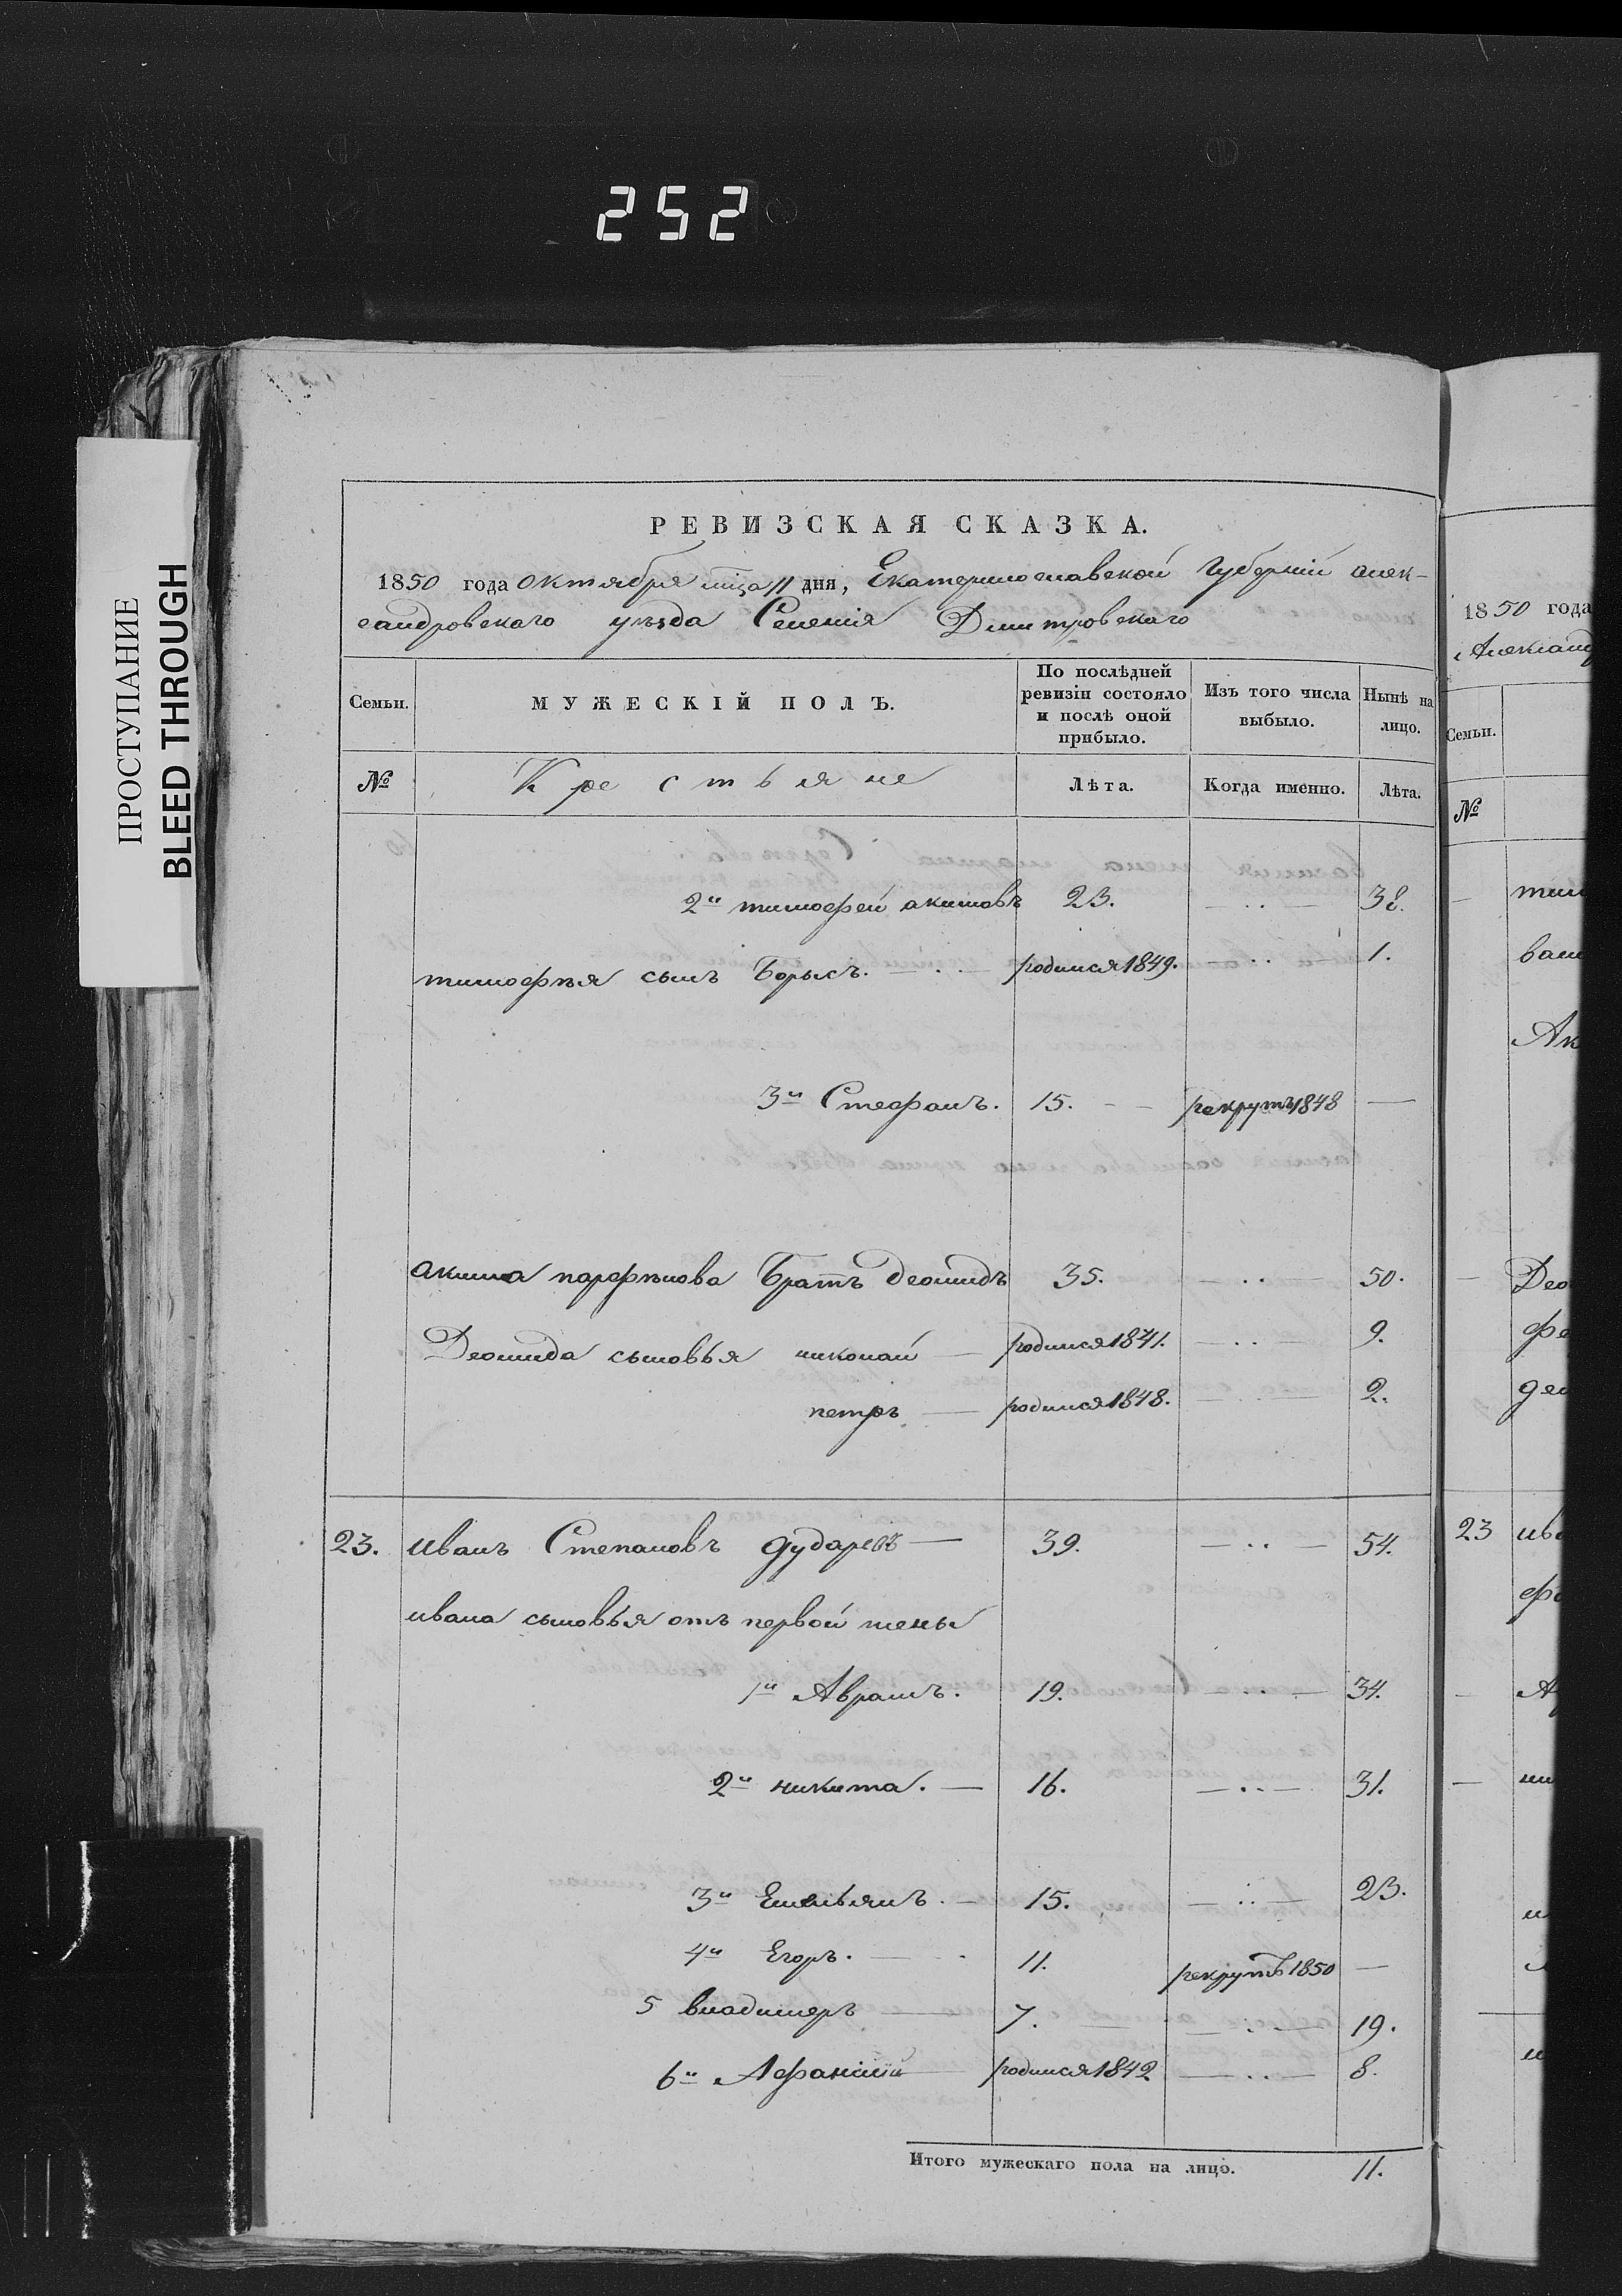 252
ПРОСТУПАНИЕ
BLEED THROUGH
РЕВИЗСКАЯ СКАЗКА.
1850 года Октября мца 11 дня, Екатеринославской Губерніи алек-
сандровскаго уѣзда Селенія Дмитровскаго
Семьи. МУЖЕСКІЙ ПОЛЪ. По послѣдней ревизіи состояло и послѣ оной прибыло. Изъ того числа выбыло. Нынѣ на лицо.
№ Крестьяне Лѣта. Когда именно. Лѣта.
2й тимофей акимовъ 23. — ·· — 38.
тимофѣя сынъ Борысъ. — ·· — родился 1849. — ·· — 1.
3й Стефанъ. 15. — — рекрутъ 1848 —
акима парфѣнова Братъ Деомидъ 35. — ·· 50.
Деомида сыновья николай — родился 1841. — ·· — 9.
петръ — родился 1848. — ·· — 2.
23. иванъ Степановъ дударевъ — 39. — ·· — 54.
ивана сыновья отъ первой жены
1й Аврамъ. 19. — ·· — 34.
2й никита. — 16. — ·· — 31.
3й Емельянъ. — 15. — ·· — 23.
4й Егоръ. — 11. рекрутъ 1850 —
5 владимеръ — 7. — — ·· — 19.
6й Афанасій — родился 1842 — ·· — 8.
Итого мужескаго пола на лицо. 11.
1850 года
Александ
Семьи.
№
тим
Ак
Део
23 ива